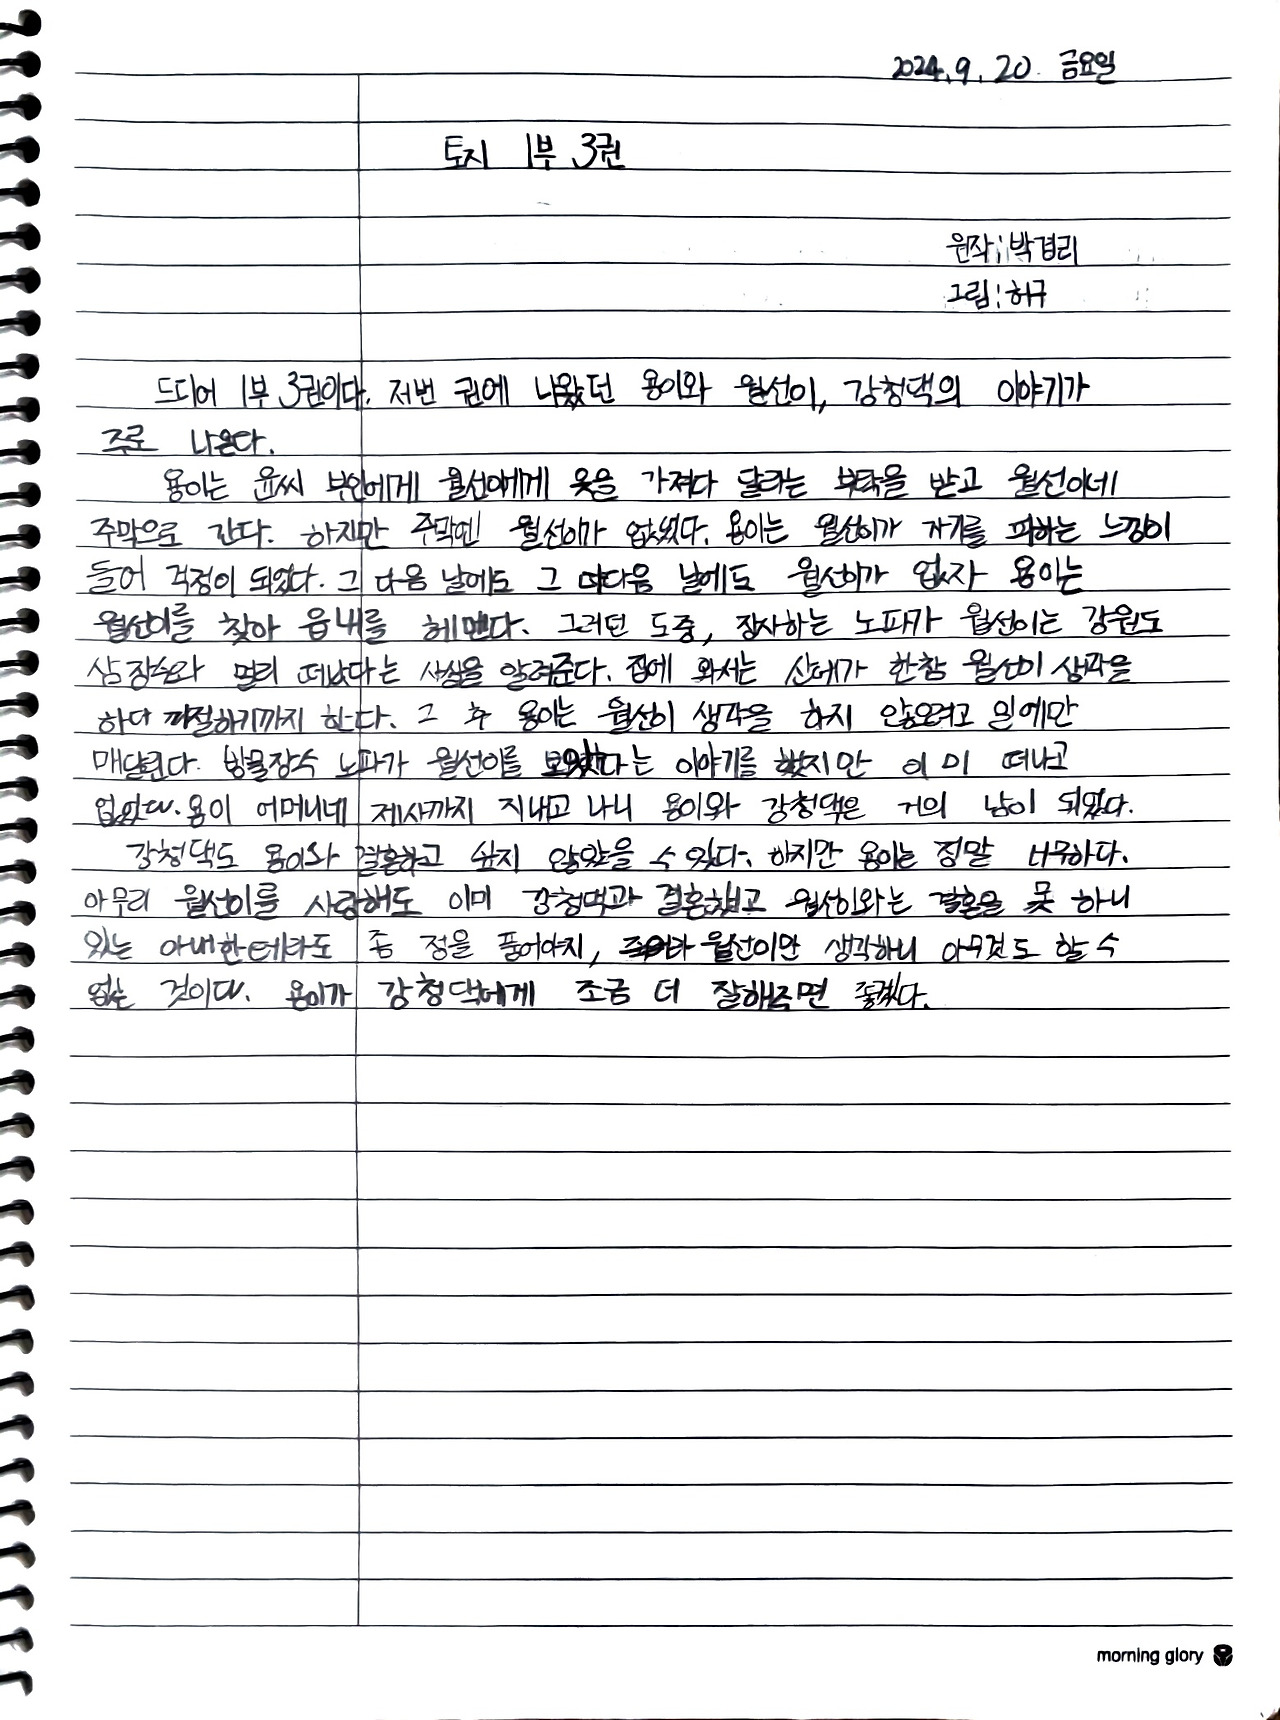 2024.9.20. 금요일
토지 1부 3권
원작:박경리
그림:허규
드디어 1부 3권이다. 저번 권에 나왔던 용이와 월선이, 강청댁의 이야기가
주로 나온다.
용이는 윤씨 부인에게 월선이에게 옷을 가져다 달라는 부탁을 받고 월선이네
주막으로 간다. 하지만 주막엔 월선이가 없었다. 용이는 월선이가 자기를 피하는 느낌이
들어 걱정이 되었다. 그 다음 날에도 그 다다음 날에도 월선이가 없자 용이는
월선이를 찾아 읍내를 헤멘다. 그러던 도중, 장사하는 노파가 월선이는 강원도
삼장수와 멀리 떠났다는 사실을 알려준다. 집에 와서는 산에가 한참 월선이 생각을
하다 까절하기까지 한다. 그 후 용이는 월선이 생각을 하지 않으려고 일에만
매달린다. 방물장수 노파가 월선이를 보았다는 이야기를 했지만 이미 떠나고
없었다. 용이 어머니네 제사까지 지내고 나니 용이와 강청댁은 거의 남이 되었다.
강청댁도 용이와 결혼하고 싶지 않았을 수 있다. 하지만 용이는 정말 너무하다.
아무리 월선이를 사랑해도 이미 강청댁과 결혼했고 월선이와는 결혼을 못 하니
있는 아내한테라도 좀 정을 풀어야지, 월선이만 생각하니 아무것도 할 수
없는 것이다. 용이가 강청댁에게 조금 더 잘해주면 좋겠다.
morning glory